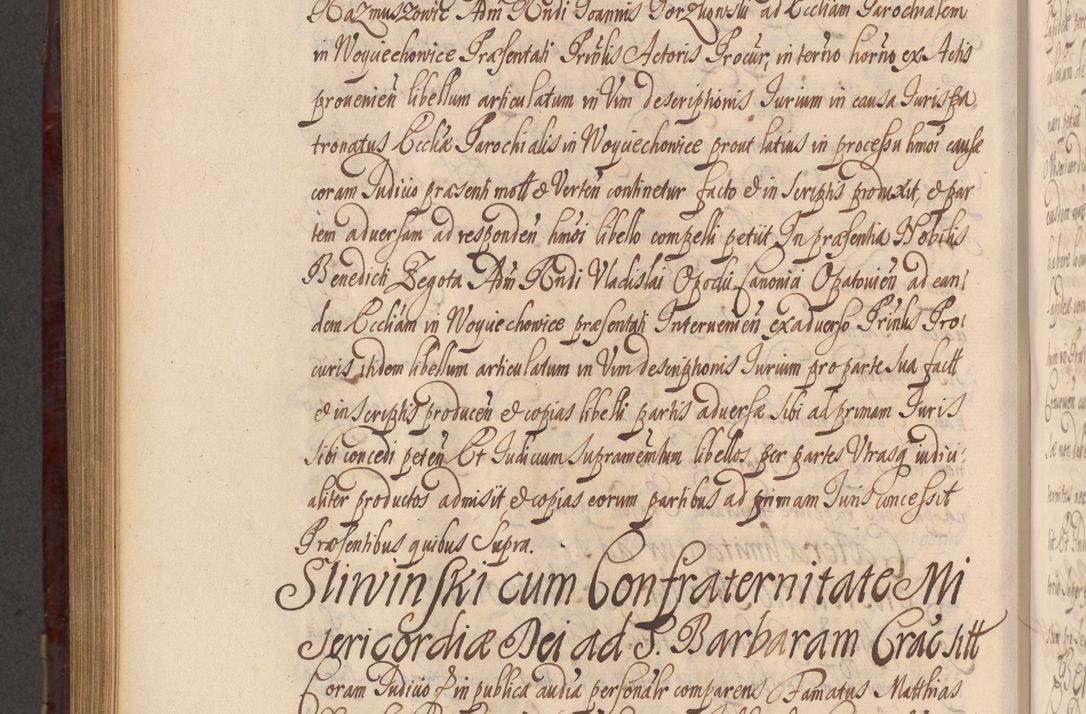 Kazmuszowic Adm Rndi Joannis Gorzkowski ad Eccliam Parochialem
in Woyciechowice Præsentati Prinlis Actoris Procur, in terno horno ex Actis
provenien libellum articulatum in Vim descriptionis Jurium in causa Juris pa
tronatus Eccliæ Parochialis in Woyciechowice prout latius in processu hmoi causæ
coram Judicio præsenti mott & Verten continetur facto & in scriptis produxit, & par
tem adversam ad responden hmoi libello compelli petiit In præsentia Nobilis
Benedicti Zegota Adm Rndi Vladislai Opocki Canonici Opatovien ad ean:
dem Eccliam in Woyciechowice præsentati Intervenien, ex adverso Prinlis Pro:
curis itidem libellum articulatum in Vim descriptionis Jurium pro parte sua factt
& in scriptis producen & copias libelli partis adversæ sibi ad primam Juris
sibi concedi peten Et Judicium supramentum libellos per partes Utrasq iudici:
aliter productos admisit & copias eorum partibus ad primam Juris concessit
Præsentibus quibus supra.
Sliwinski cum Confraternitate Mi
sericordiæ Dei ad S. Barbaram Crac sitt
Coram Judicio & in publica audia personalr comparens Famatus Matthias